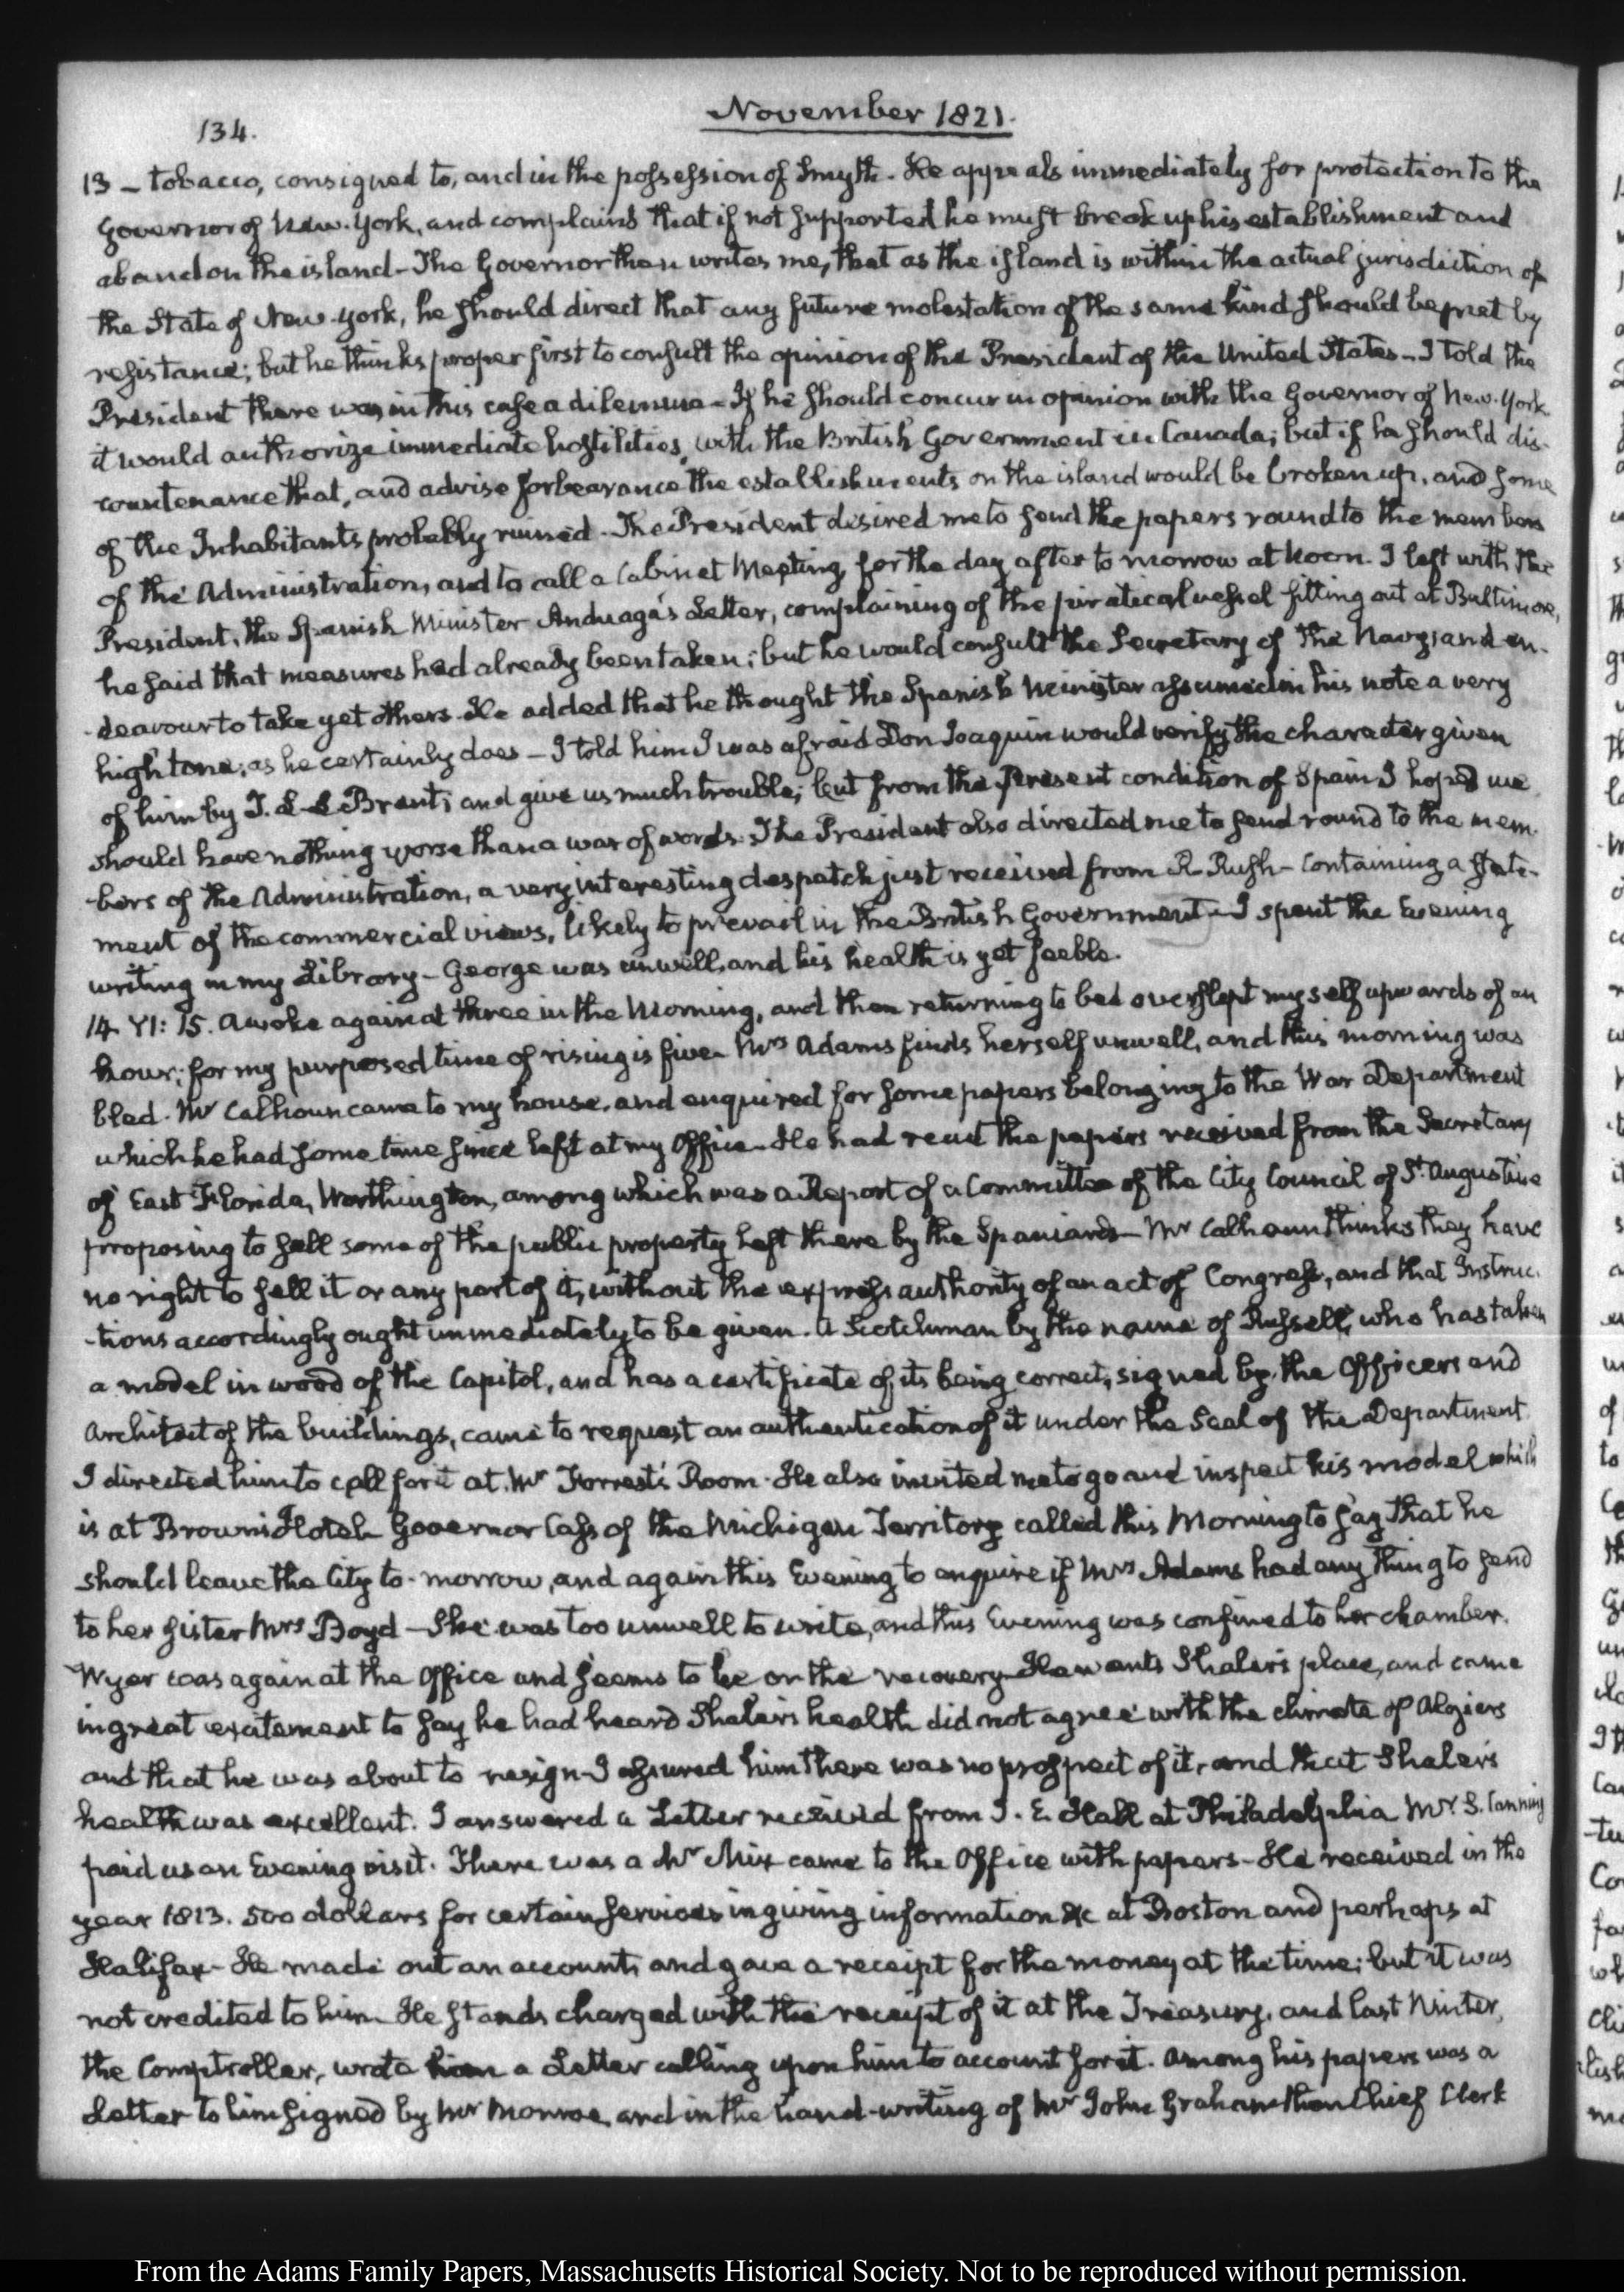 134.
November 1821.
13 – tobacco, consigned to, and in the possession of Smyth. He appeals immediately for protection to the
Governor of New-York, and complains that if not supported he must break up his establishment and
abandon the island – The Governor then writes me, that as the island is within the actual jurisdiction of
the State of New-York, he should direct that any future molestation of the same kind should be met by
resistance; but he thinks proper first to consult the opinion of the President of the United States – I told the
President there was in this case a dilemma – If he should concur in opinion with the Governor of New-York
it would authorize immediate hostilities, with the British Government in Canada; but if he should dis-
countenance that, and advise forbearance the establishments on the island would be broken up, and some
of the Inhabitants probably ruined. The President desired me to send the papers round to the members
of the Administration, and to call a Cabinet Meeting for the day after to morrow at Noon. I left with the
President, the Spanish Minister Anduaga's Letter, complaining of the piratical vessel fitting out at Baltimore,
he said that measures had already been taken; but he would consult the Secretary of the Navy, and en-
-deavour to take yet others. He added that he thought the Spanish Minister assumed in his note a very
high tone; as he certainly does – I told him I was afraid Don Joaquin would verify the character given
of him by T. L. L. Brent; and give us much trouble; but from the present condition of Spain I hoped we
should have nothing worse than a war of words. The President also directed me to send round to the mem-
-bers of the Administration, a very interesting despatch just received from R. Rush – containing a state-
ment of the commercial views, likely to prevail in the British Government – I spent the Evening
writing in my Library – George was unwell, and his health is yet feeble.
14. VI: 15. Awoke again at three in the Morning, and then returning to bed overslept myself upwards of an
hour; for my purposed time of rising is five – Mrs Adams finds herself unwell, and this morning was
bled. Mr Calhoun came to my house, and enquired for some papers belonging to the War Department
which he had some time since left at my Office – He had read the papers received from the Secretary
of East Florida, Worthington, among which was a Report of a Committee of the City Council of St. Augustine
proposing to sell some of the public property left there by the Spaniards – Mr Calhoun thinks they have
no right to sell it or any part of it, without the express authority of an act of Congress, and that Instruc-
-tions accordingly ought immediately to be given. A Scotchman by the name of Russell, who has taken
a model in wood of the Capitol, and has a certificate of its being correct, signed by the Officers and
Architect of the buildings, came to request an authentication of it under the Seal of the Department.
I directed him to call for it at Mr Forrest's Room. He also invited me to go and inspect his model which
is at Brown's Hotel. Governor Cass of the Michigan Territory called this Morning to say that he
should leave the City to-morrow, and again this Evening to enquire if Mrs Adams had any thing to send
to her sister Mrs Boyd – She was too unwell to write, and this Evening was confined to her chamber.
Wyer was again at the Office and seems to be on the recovery. He wants Shaler's place, and came
in great excitement to say he had heard Shaler's health did not agree with the climate of Algiers
and that he was about to resign – I assured him there was no prospect of it, and that Shaler's
health was excellent. I answered a Letter received from J. E. Hall at Philadelphia Mr. S. Canning
paid us an Evening visit. There was a Mr Mix came to the Office with papers – He received in the
year 1813. 500 dollars for certain services in giving information &c at Boston and perhaps at
Halifax – He made out an account, and gave a receipt for the money at the time; but it was
not credited to him. He stands charged with the receipt of it at the Treasury, and last Winter,
the Comptroller, wrote him a Letter calling upon him to account for it. Among his papers was a
Letter to him signed by Mr Monroe, and in the hand-writing of Mr John Graham then Chief Clerk
From the Adams Family Papers, Massachusetts Historical Society. Not to be reproduced without permission.